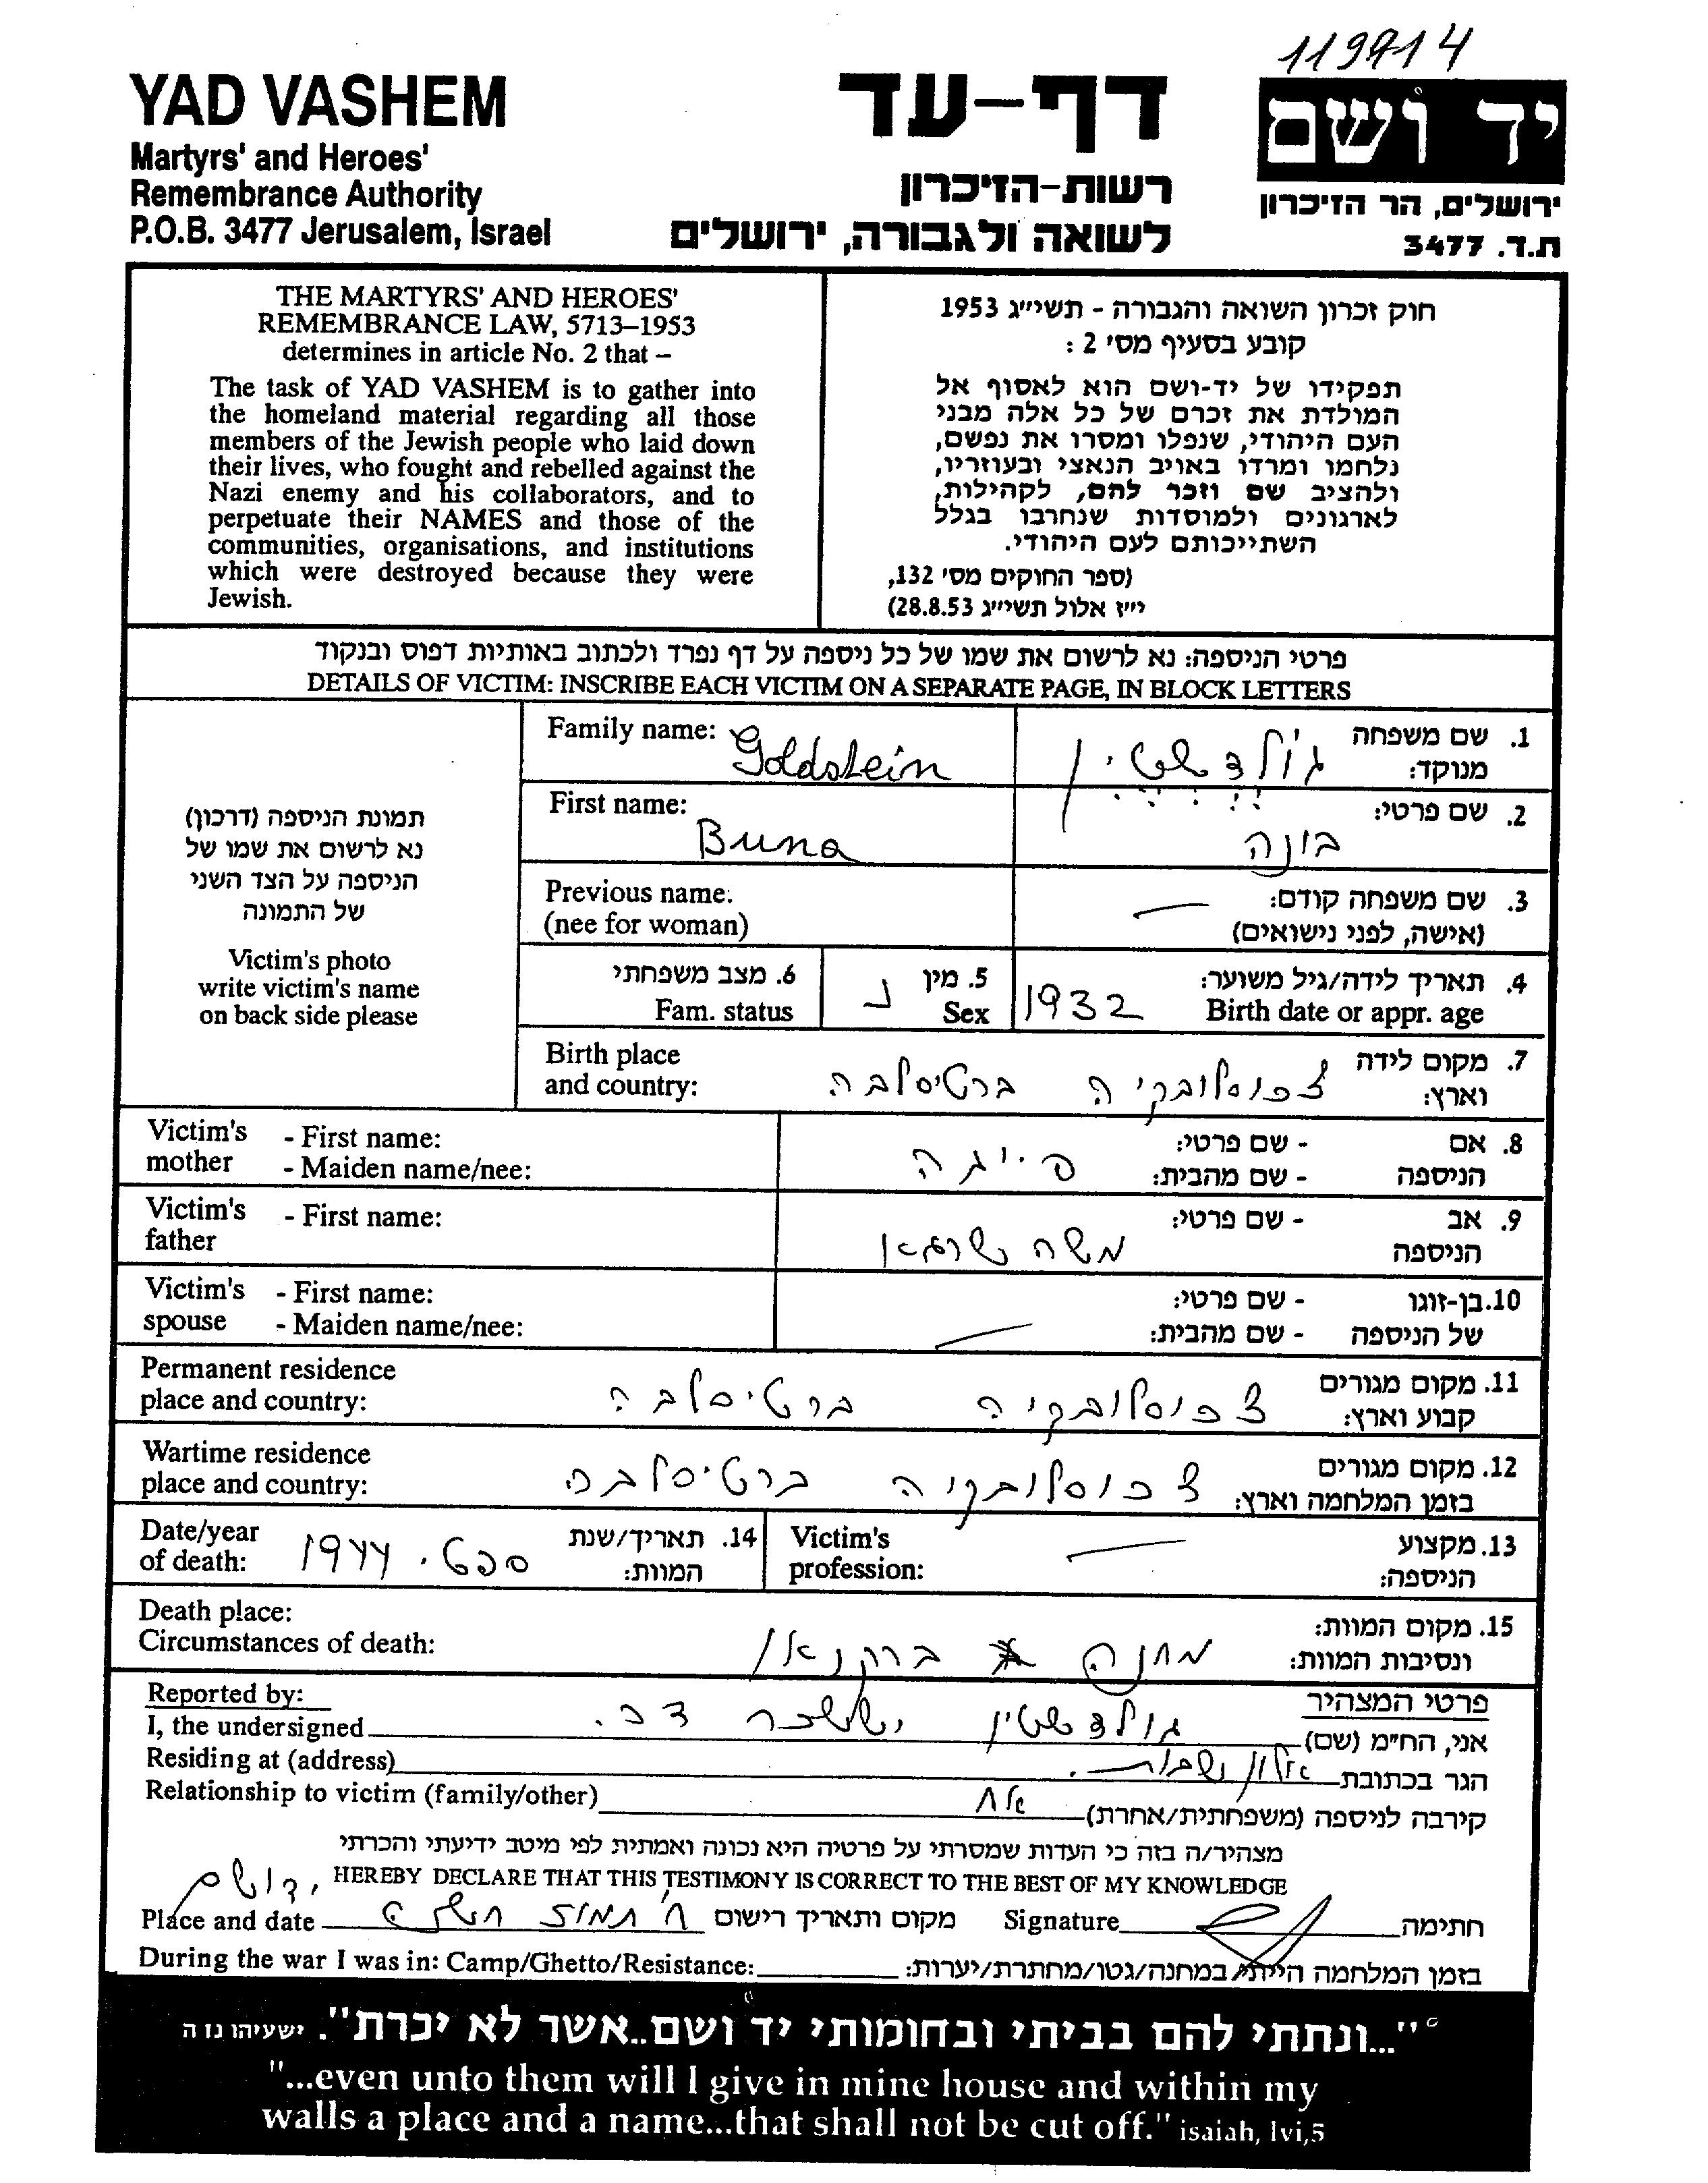 119914
YAD VASHEM
Martyrs' and Heroes'
Remembrance Authority
P.O.B. 3477 Jerusalem, Israel
דף-עד
רשות-הזיכרון
לשואה ולגבורה, ירושלים
יד ושם
ירושלים, הר הזיכרון
ת.ד. 3477
THE MARTYRS' AND HEROES'
REMEMBRANCE LAW, 5713–1953
determines in article No. 2 that –
The task of YAD VASHEM is to gather into
the homeland material regarding all those
members of the Jewish people who laid down
their lives, who fought and rebelled against the
Nazi enemy and his collaborators, and to
perpetuate their NAMES and those of the
communities, organisations, and institutions
which were destroyed because they were
Jewish.
חוק זכרון השואה והגבורה - תשי״ג 1953
קובע בסעיף מס' 2 :
תפקידו של יד-ושם הוא לאסוף אל
המולדת את זכרם של כל אלה מבני
העם היהודי, שנפלו ומסרו את נפשם,
נלחמו ומרדו באויב הנאצי ובעוזריו,
ולהציב שם וזכר להם, לקהילות,
לארגונים ולמוסדות שנחרבו בגלל
השתייכותם לעם היהודי.
(ספר החוקים מס' 132,
י״ז אלול תשי״ג 28.8.53)
פרטי הניספה: נא לרשום את שמו של כל ניספה על דף נפרד ולכתוב באותיות דפוס ובנקוד
DETAILS OF VICTIM: INSCRIBE EACH VICTIM ON A SEPARATE PAGE, IN BLOCK LETTERS
תמונת הניספה (דרכון)
נא לרשום את שמו של
הניספה על הצד השני
של התמונה
Victim's photo
write victim's name
on back side please
Family name: Goldstein גולדשטיין 1. שם משפחה
מנוקד:
First name: 2. שם פרטי:
Buna בונה
Previous name: 3. שם משפחה קודם:
(nee for woman) (אישה, לפני נישואים)
6. מצב משפחתי 5. מין נ 4. תאריך לידה/גיל משוער:
Fam. status Sex 1932 Birth date or appr. age
Birth place 7. מקום לידה
and country: צכוסלובקיה ברטיסלבה וארץ:
Victim's - First name: - שם פרטי: 8. אם
mother - Maiden name/nee: פייגה - שם מהבית: הניספה
Victim's - First name: - שם פרטי: 9. אב
father משה שרגא הניספה
Victim's - First name: - שם פרטי: 10. בן-זוגו
spouse - Maiden name/nee: - שם מהבית: של הניספה
Permanent residence 11. מקום מגורים
place and country: צכוסלובקיה ברטיסלבה קבוע וארץ:
Wartime residence 12. מקום מגורים
place and country: צכוסלובקיה ברטיסלבה בזמן המלחמה וארץ:
Date/year 14. תאריך/שנת Victim's 13. מקצוע
of death: ספט. 1944 המוות: profession: הניספה:
Death place: 15. מקום המוות:
Circumstances of death: מחנה ברקנאו ונסיבות המוות:
Reported by: פרטי המצהיר
I, the undersigned גולדשטיין יששכר דב. אני, הח״מ (שם)
Residing at (address) אלון שבות. הגר בכתובת
Relationship to victim (family/other) אח קירבה לניספה (משפחתית/אחרת)
מצהיר/ה בזה כי העדות שמסרתי על פרטיה היא נכונה ואמתית לפי מיטב ידיעתי והכרתי
HEREBY DECLARE THAT THIS TESTIMONY IS CORRECT TO THE BEST OF MY KNOWLEDGE
Place and date ח' תמוז מקום ותאריך רישום Signature חתימה
During the war I was in: Camp/Ghetto/Resistance: בזמן המלחמה הייתי במחנה/גטו/מחתרת/יערות:
"...ונתתי להם בביתי ובחומותי יד ושם..אשר לא יכרת". ישעיהו נו ה
"...even unto them will I give in mine house and within my
walls a place and a name...that shall not be cut off." isaiah, lvi,5